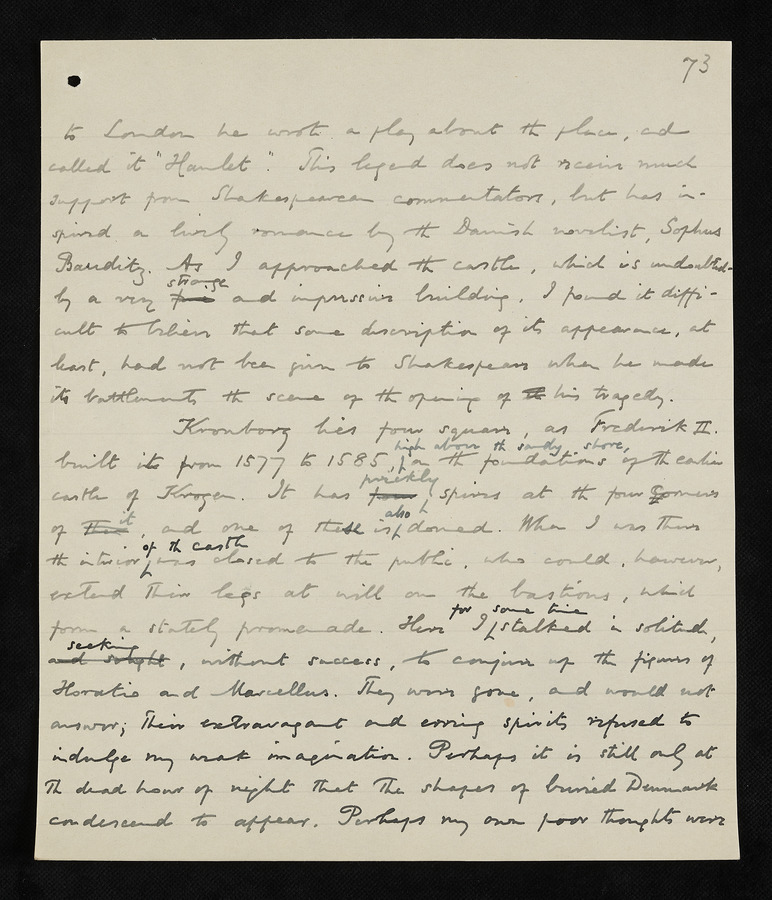 73
to London he wrote a play about the place, and
called it "Hamlet". This legend does not receive much
support from Shakespearean commentators, but has in-
spired a lively romance by the Danish novelist, Sophus
Bauditz. As I approached the castle, which is undoubted-
strange
ly a very and impressive building, I found it diffi-
cult to believe that some description of its appearance, at
least, had not been given to Shakespeare when he made
its battlements the scene of the opening of the his tragedy.
Kronborg lies four square, as Frederik II.
high above the sandy shore,
built it from 1577 to 1585, on the foundations of the earlier
prickly
castle of Krogen. It has four spires at the four corners
it also
of, and one of these is domed. When I was there
of the castle
the interior was closed to the public, who could, however,
extend their legs at will on the bastions, which
for some time
form a stately promenade. Here I stalked in solitude,
seeking
and sought, without success, to conjure up the figures of
Horatio and Marcellus. They were gone, and would not
answer; their extravagant and erring spirits refused to
indulge my weak imagination. Perhaps it is still only at
the dead hour of night that the shapes of buried Denmark
condescend to appear. Perhaps my own poor thoughts were